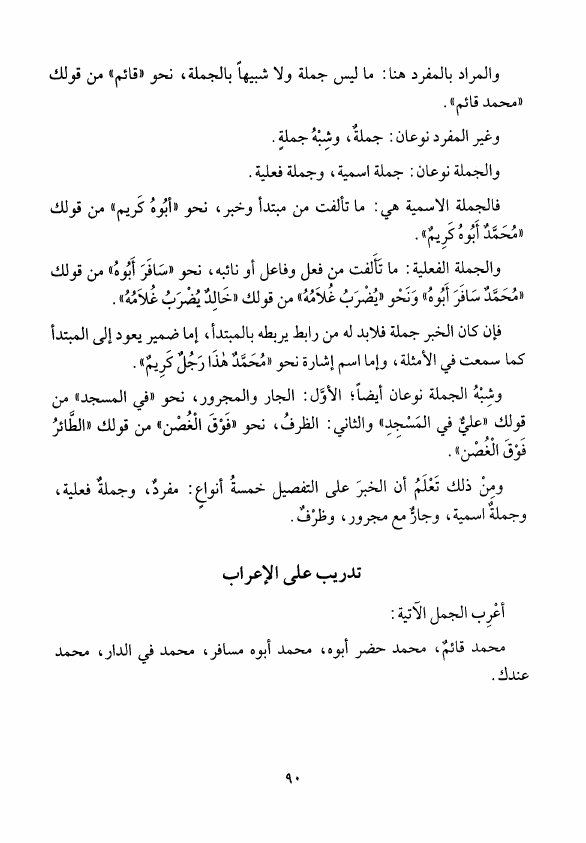 والمراد بالمفرد هنا: ما ليس جملة ولا شبيهاً بالجملة، نحو «قائم» من قولك
«محمد قائم».
وغير المفرد نوعان: جملةٌ، وشِبْهُ جملةٍ.
والجملة نوعان: جملة اسمية، وجملة فعلية.
فالجملة الاسمية هي: ما تألفت من مبتدأ وخبر، نحو «أبُوهُ كَرِيم» من قولك
«مُحَمَّدٌ أَبُوهُ كَرِيمٌ».
والجملة الفعلية: ما تَأَلفت من فعل وفاعل أو نائبه، نحو «سَافَرَ أَبُوهُ» من قولك
«مُحَمَّدٌ سَافَرَ أَبُوهُ» وَنَحْو «يُضْرَبُ غُلَامُهُ» من قولك «خَالِدٌ يُضْرَبُ غُلَامُهُ».
فإن كان الخبر جملة فلابد له من رابط يربطه بالمبتدأ، إما ضمير يعود إلى المبتدأ
كما سمعت في الأمثلة، وإما اسم إشارة نحو «مُحَمَّدٌ هٰذَا رَجُلٌ كَرِيمٌ».
وشِبْهُ الجملة نوعان أيضاً؛ الأوَّل: الجار والمجرور، نحو «في المسجد» من
قولك «عليٌّ في المَسْجِدِ» والثاني: الظرفُ، نحو «فَوْقَ الْغُصْن» من قولك «الطَّائرُ
فَوْقَ الْغُصْن».
ومِنْ ذلك تَعْلَمُ أن الخبرَ على التفصيل خمسةُ أنواعٍ: مفردٌ، وجملةٌ فعلية،
وجملةٌ اسمية، وجارٌّ مع مجرور، وظرْفٌ.
تدريب على الإعراب
أعْرِب الجمل الآتية:
محمد قائمٌ، محمد حضر أبوه، محمد أبوه مسافر، محمد في الدار، محمد
عندك.
٩٠